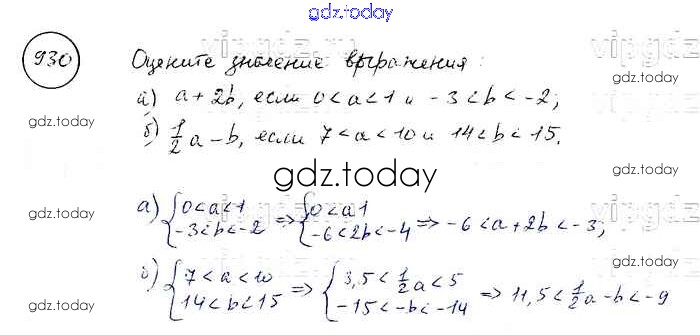 gdz.today
930
Оцените значение выражения:
а) a + 2b, если 0 < a < 1 и -3 < b < -2;
б) 1/2 a - b, если 7 < a < 10 и 14 < b < 15.
gdz.today
gdz.today
gdz.today
а) { 0 < a < 1 ; -3 < b < -2 => { 0 < a 1 ; -6 < 2b < -4 => -6 < a + 2b < -3;
gdz.today
gdz.today
б) { 7 < a < 10 ; 14 < b < 15 => { 3,5 < 1/2 a < 5 ; -15 < -b < -14 => 11,5 < 1/2 a - b < -9
gdz.today
gdz.today